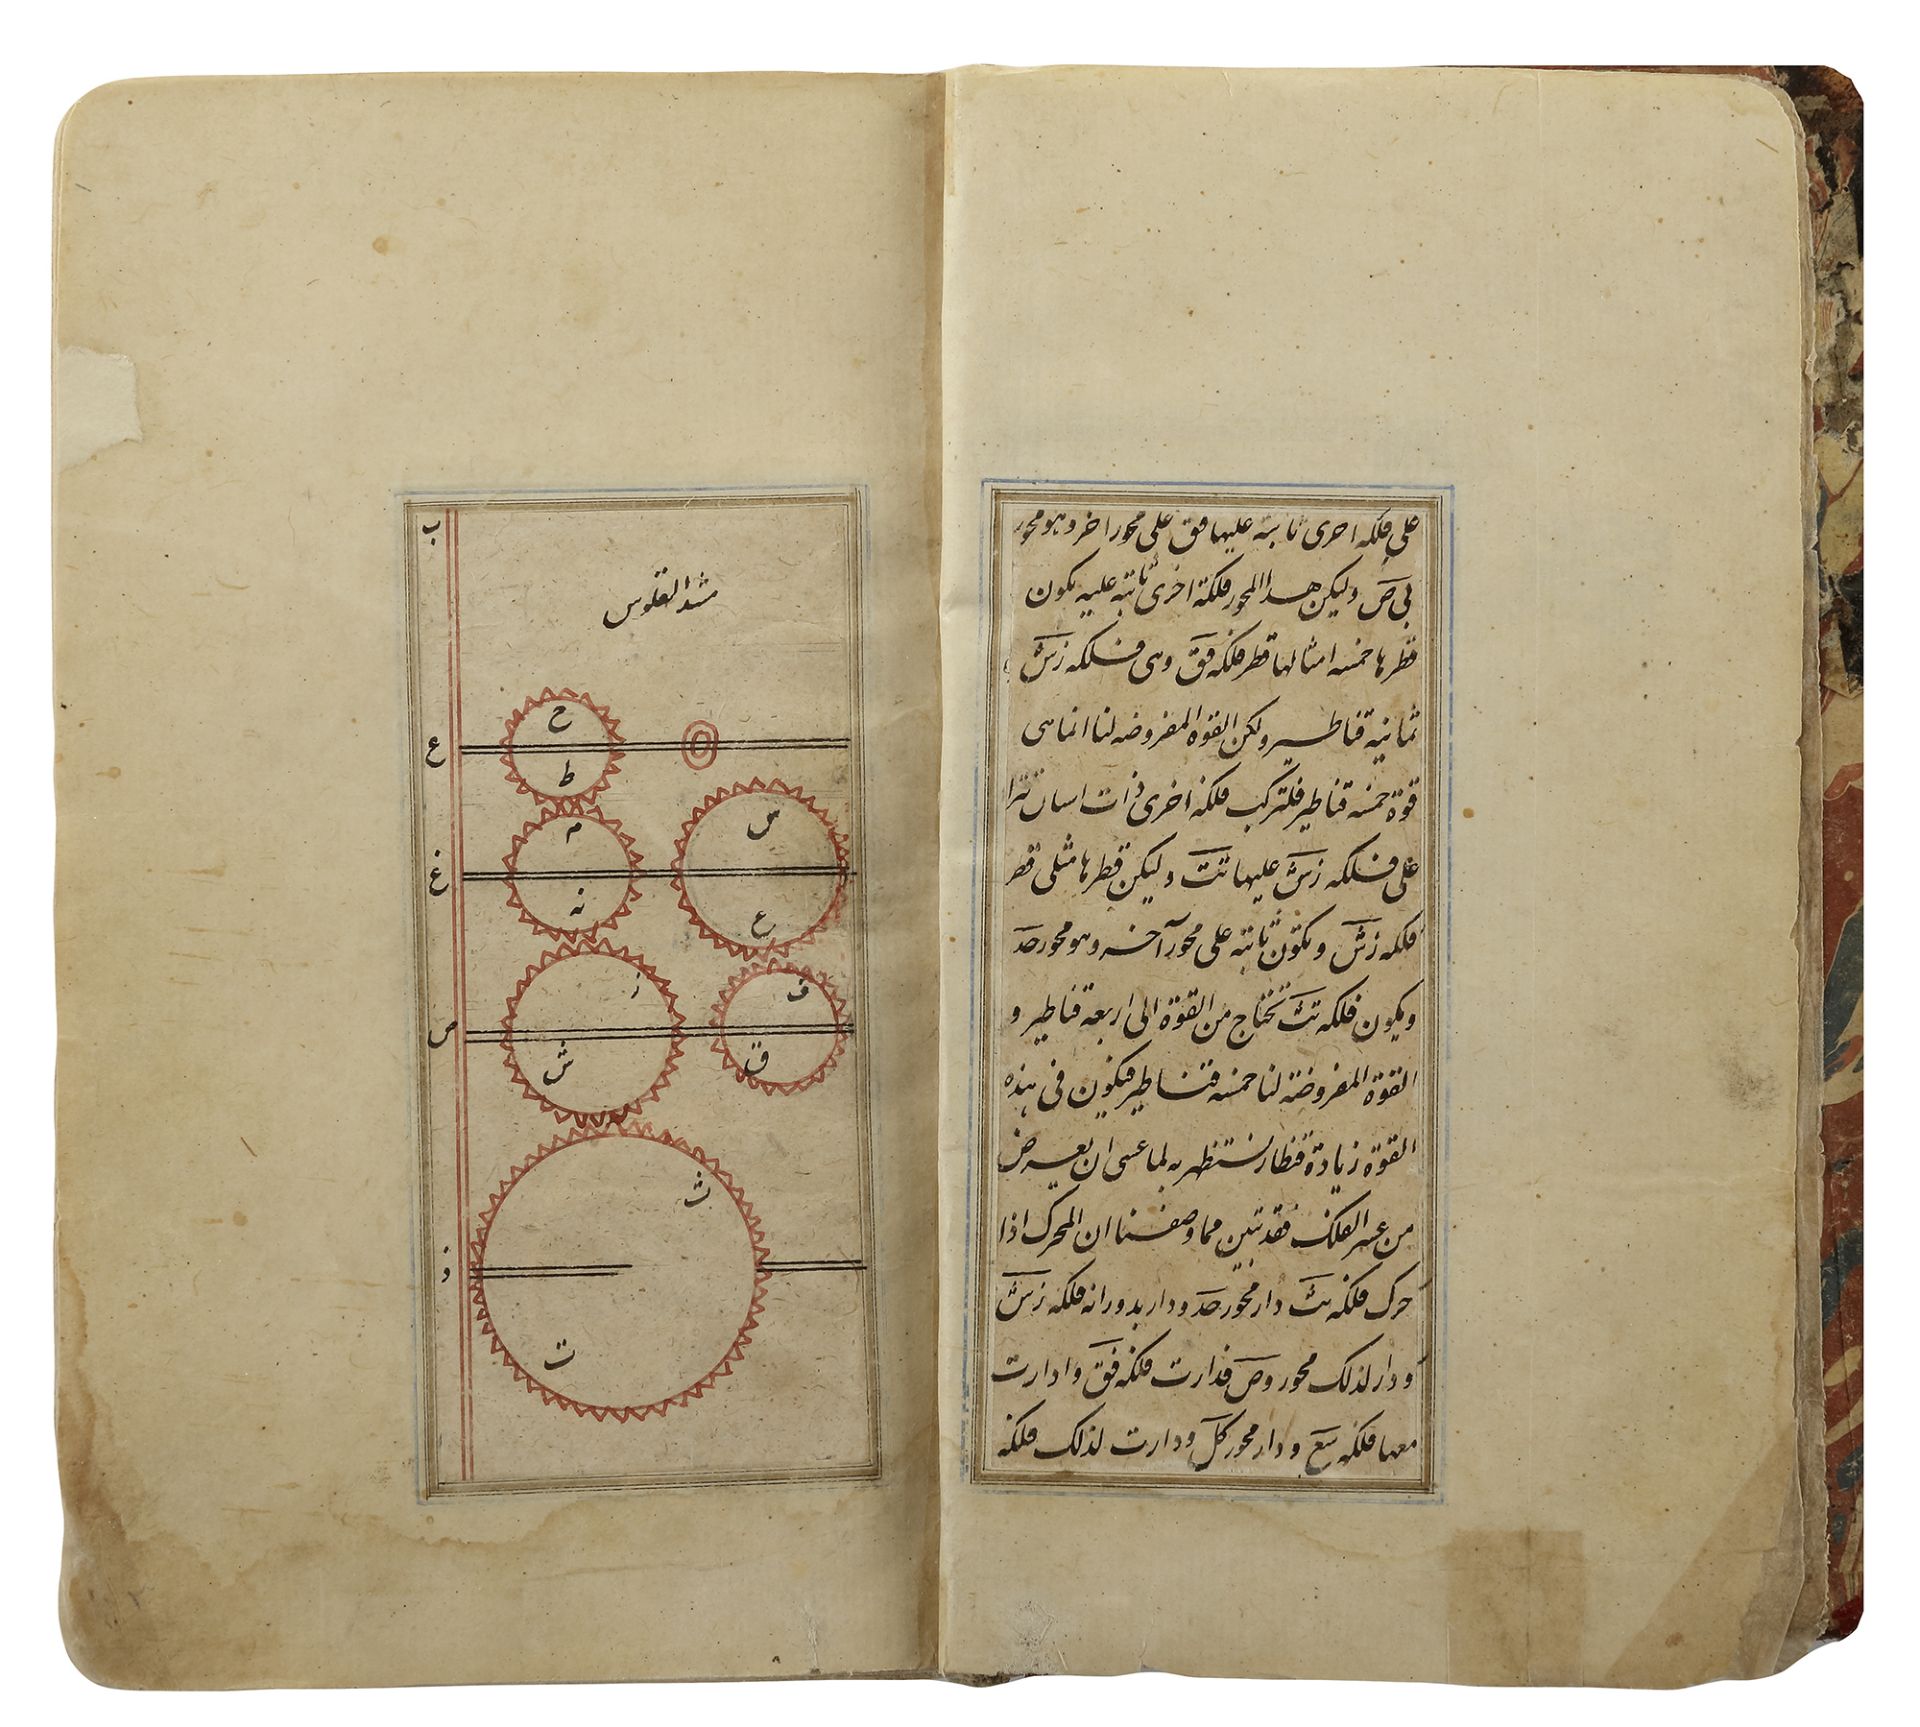 على فلكه اخرى ثابته عليها فق على محور اخر وهو محور
بى ص وليكن هذا المحور فلكة اخرى ثابته عليه يكون
قطرها خمسه امثالها قطر فلكه فق وهى فلكه زش
ثمانية قناطير ولكن القوة المفروضه لنا انما هى
قوة خمسه قناطير فلتركب فلكة اخرى ذات اسنان
على فلكه زش عليها تث وليكن قطرها مثلى قطر
فلكه زش ويكون ثابته على محور آخر وهو محور
ويكون فلكه تث تحتاج من القوة الى اربعة قناطير و
القوة المفروضة لنا خمسه قناطير فيكون فى هذه
القوة زيادة قنطار نستظهر به لما عسى ان يعرض
من عسر الفلك فقد تبين مما وصفنا ان المحرك اذا
حرك فلكة تث دار محور ودار بدورانه فلكه زش
ودار لذلك محور وص فدارت فلكه فق وادارت
معها فلكه سع ودار محور كل ودارت لذلك فلكة
ب
القلوس
ح
ع
ط
س
م
غ
نه
ع
ز
ف
ص
ش
ق
ث
ذ
ت